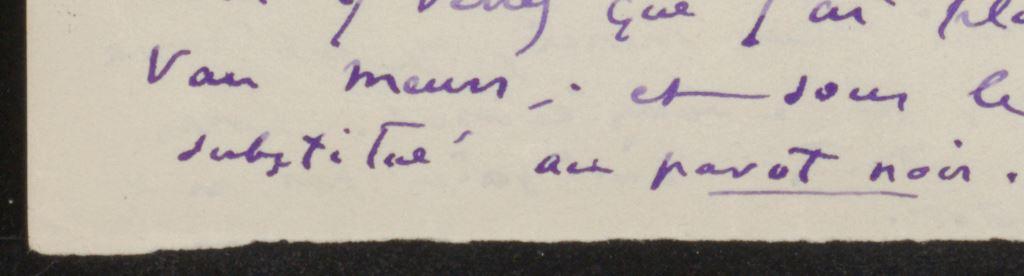 y verrez que j'ai
Van meurs ; et sous le
substitué au pavot noir.